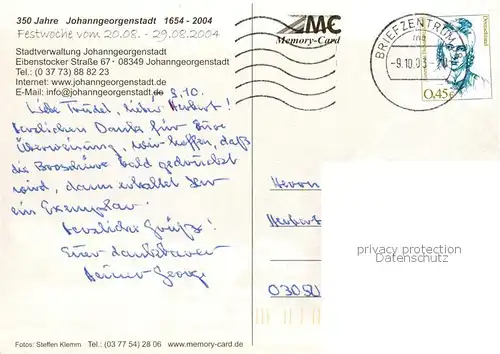 350 Jahre Johanngeorgenstadt 1654 - 2004
Festwoche vom 20.08. - 29.08.2004
Stadtverwaltung Johanngeorgenstadt
Eibenstocker Straße 67 - 08349 Johanngeorgenstadt
Tel.: (0 37 73) 88 82 23
Internet: www.johanngeorgenstadt.de
E-Mail: info@johanngeorgenstadt.de
9.10.
Liebe Trudel, lieber Herbert!
Herzlichen Dank für Eure
Überweisung, wir hoffen, daß
die Broschüre bald gedruckt
wird, dann erhaltet Ihr
ein Exemplar.
Herzliche Grüße!
Euer dankbarer
Heiner George
MC
Memory-Card
BRIEFZENTRUM
-9.10.03
Deutschland
0,45€
Herrn
Herbert
03050
privacy protection
Datenschutz
Fotos: Steffen Klemm Tel.: (03 77 54) 28 06 www.memory-card.de